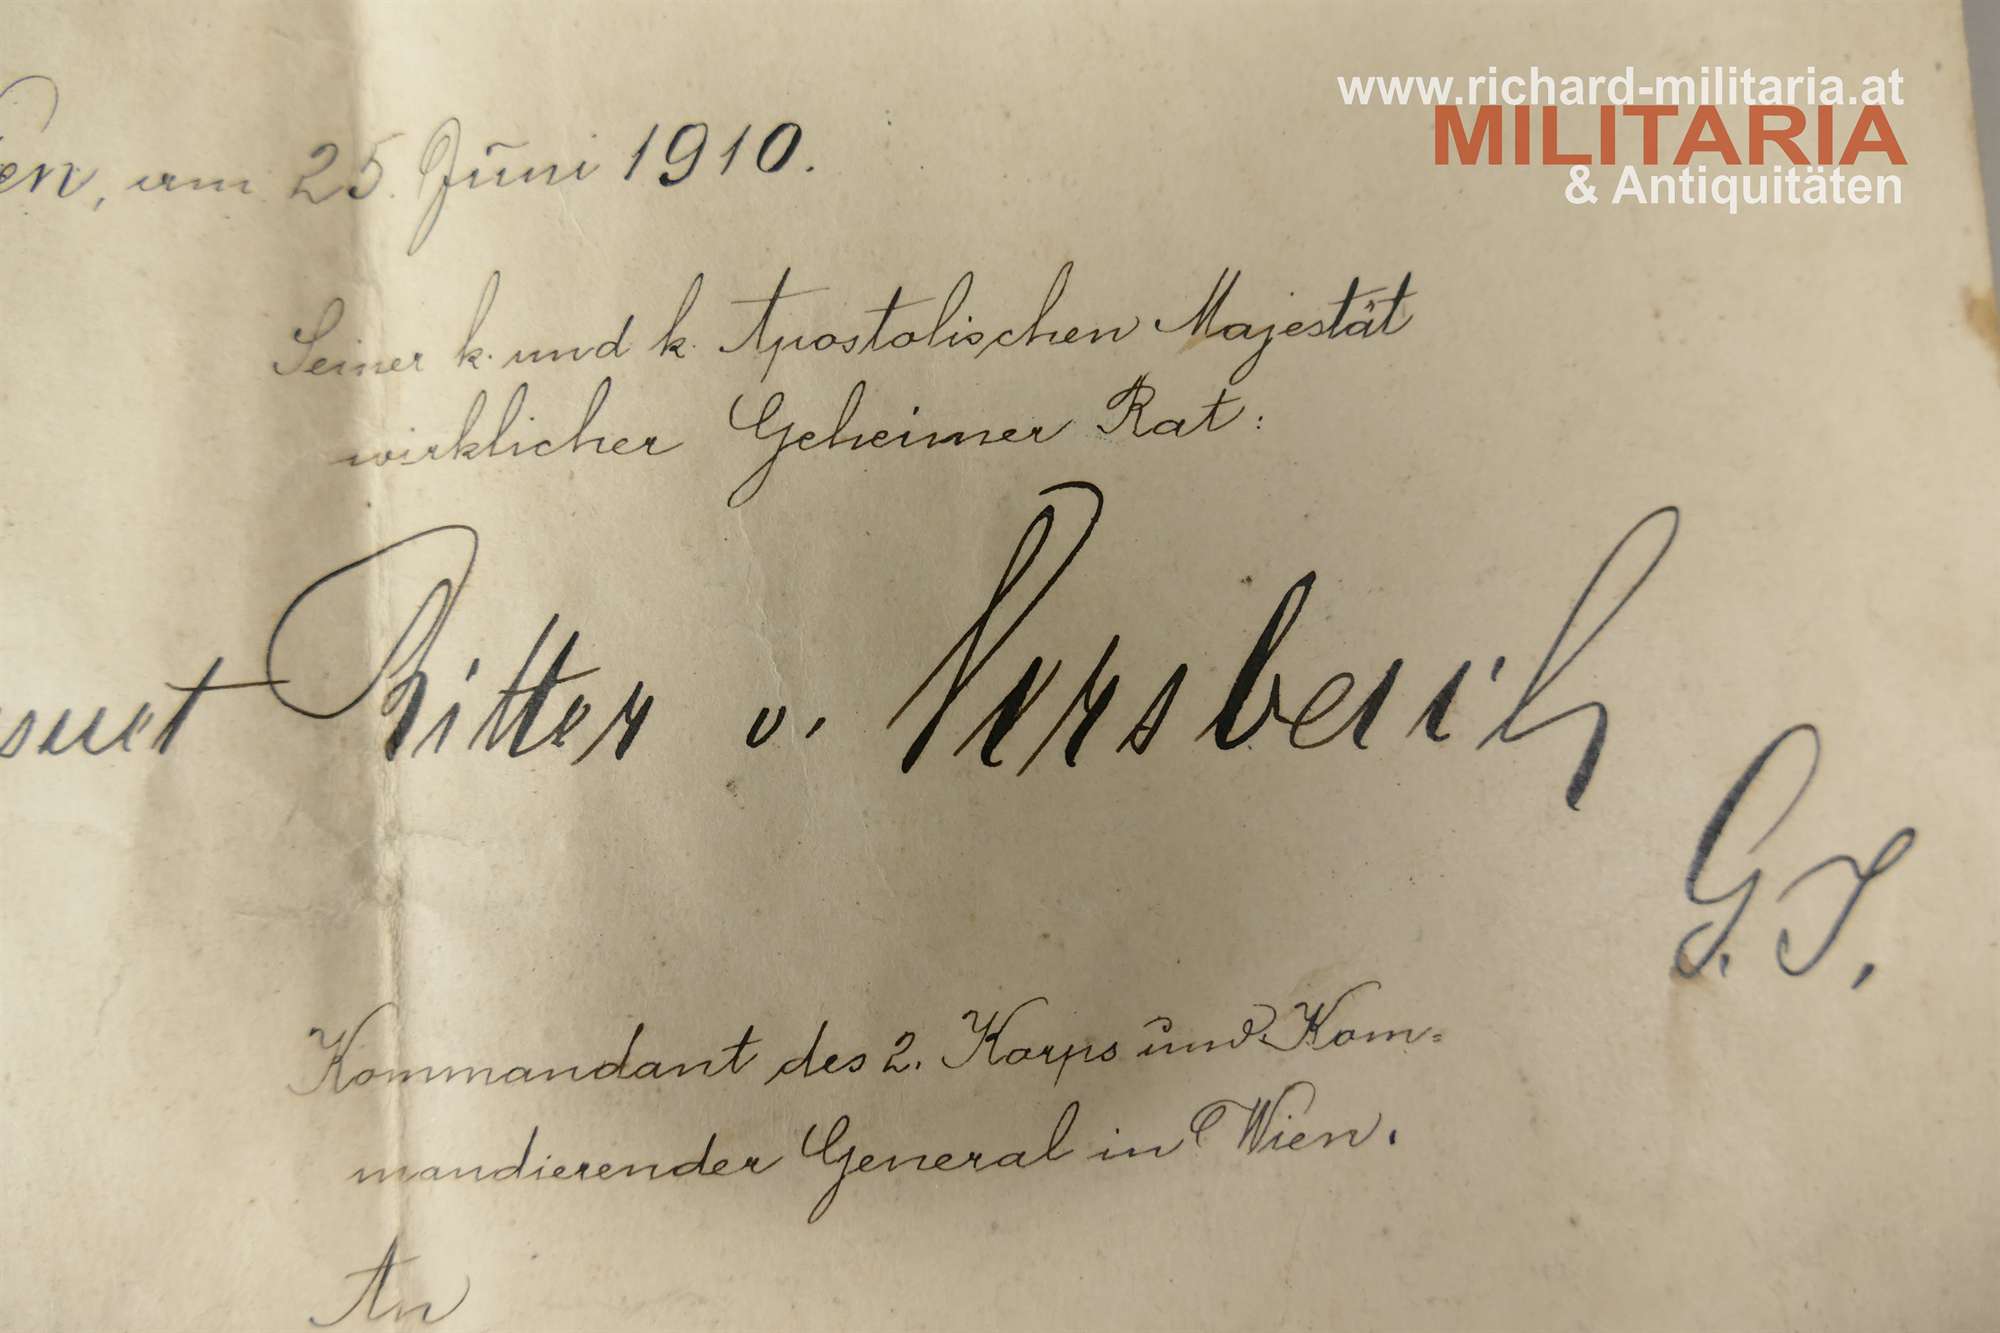 www.richard-militaria.at
MILITARIA
& Antiquitäten
en, am 25. Juni 1910.
Seiner k. und k. Apostolischen Majestät
wirklicher Geheimer Rat:
Ritter v. Versbach
G. I.
Kommandant des 2. Korps und Kom=
mandierender General in Wien.
An